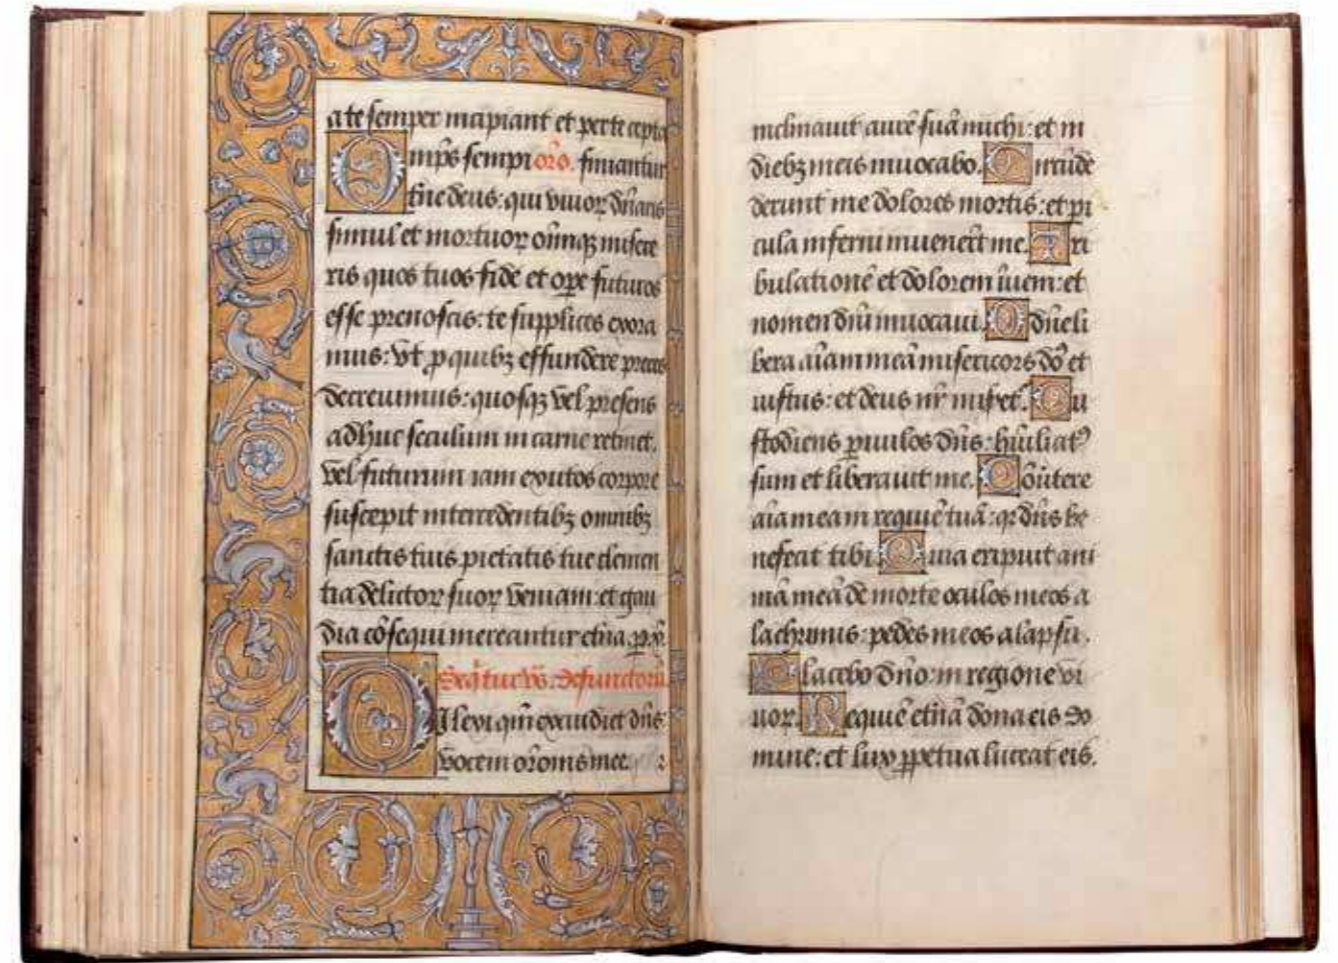 a te semper incipiant et per te cepta
O mp̄s sempi orō. finiantur
t̄ne deus: qui viuoꝝ dn̄aris
simul et mortuoꝝ om̄iūqꝫ misere
ris quos tuos fide et oꝑe futuros
esse prenoscis: te supplices exora
mus: vt ꝓ quibꝫ effundere preces
decreuimus: quosqꝫ vel presens
adhuc seculum in carne retinet.
vel futurum iam exutos corpore
suscepit intercedentibꝫ omnibꝫ
sanctis tuis pietatis tue clemen
tia delictoꝝ suoꝝ veniam: et gau
dia cōsequi mereantur et̄na. ꝑ
Seq̄tur defunctorū.
Dilexi qm̄ exaudiet dn̄s:
vocem orōnis mee.
inclinauit aurē suā michi: et in
diebꝫ meis inuocabo. Circūde
derunt me dolores mortis: et pi
cula inferni inuenert̄ me. Tri
bulationē et dolorem īueni: et
nomen dn̄i inuocaui. O dn̄e li
bera aīam meā misericors dō et
iustus: et deus nr̄ miset̄. Cu
stodiens ꝑuulos dn̄s: hūiliatꝰ
sum et liberauit me. Cōūtere
aīa mea in requiē tuā: qꝛ dn̄s be
nefecit tibi. Quia eripuit ani
mā meā de morte oculos meos a
lachrimis: pedes meos a lapsu.
Placebo dn̄o: in regione vi
uoꝝ. Requiē et̄nā dona eis do
mine: et lux ꝑpetua luceat eis.